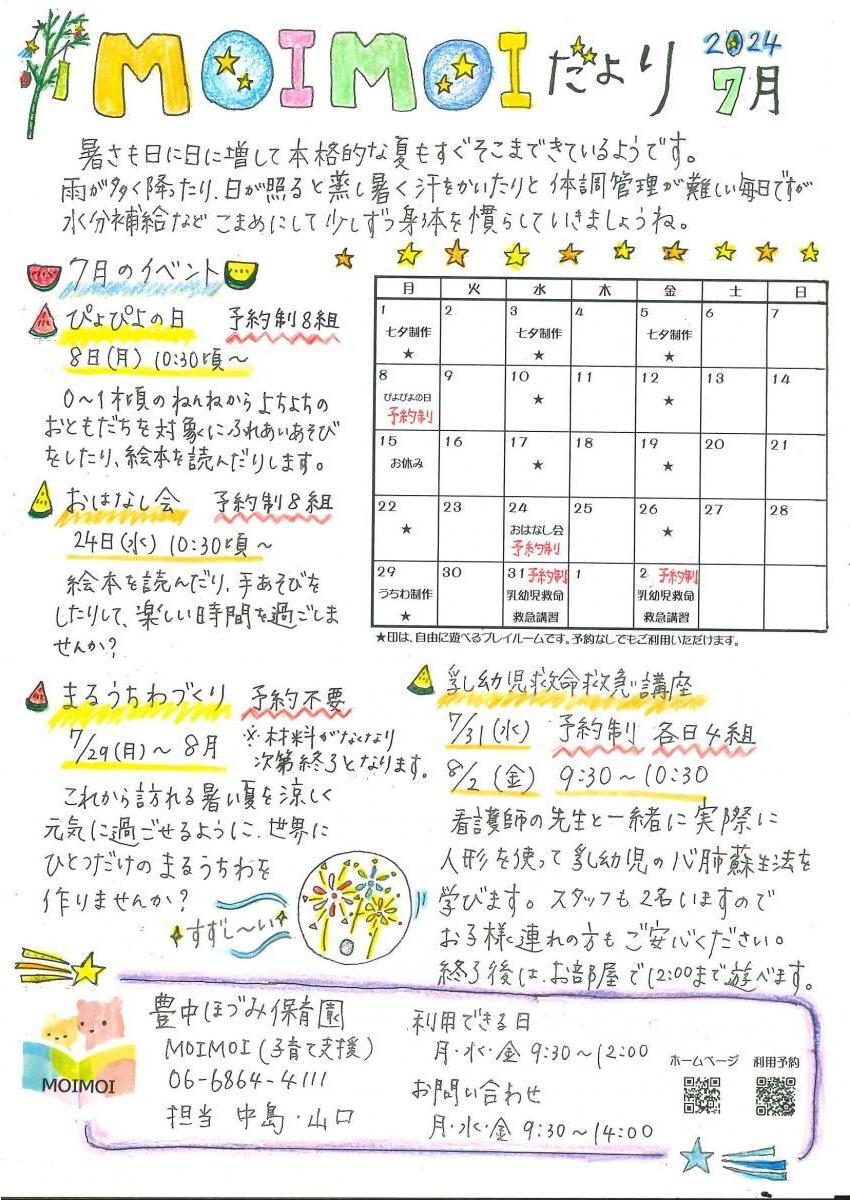 MOIMOIだより 2024 7月
暑さも日に日に増して本格的な夏もすぐそこまできているようです。
雨が多く降ったり、日が照ると蒸し暑く汗をかいたりと体調管理が難しい毎日ですが
水分補給など こまめにして少しずつ身体を慣らしていきましょうね。
7月のイベント
ぴよぴよの日 予約制8組
8日(月) 10:30頃~
0~1才頃のねんねからよちよちの
おともだちを対象にふれあいあそび
をしたり、絵本を読んだりします。
おはなし会 予約制8組
24日(水) 10:30頃~
絵本を読んだり、手あそびを
したりして、楽しい時間を過ごしま
せんか?
月 火 水 木 金 土 日
1 2 3 4 5 6 7
七夕制作 七夕制作 七夕制作
★ ★ ★
8 9 10 11 12 13 14
ぴよぴよの日 ★ ★
予約制
15 16 17 18 19 20 21
お休み ★ ★
22 23 24 25 26 27 28
★ おはなし会 ★
予約制
29 30 31 予約制 1 2 予約制
うちわ制作 乳幼児救命 乳幼児救命
★ 救急講習 救急講習
★印は、自由に遊べるプレイルームです。予約なしでもご利用いただけます。
まるうちわづくり 予約不要
7/29(月)~8月 ※材料がなくなり
次第終了となります。
これから訪れる暑い夏を涼しく
元気に過ごせるように、世界に
ひとつだけの まるうちわを
作りませんか?
すずし~い
乳幼児救命救急講座
7/31(水) 予約制 各日4組
8/2(金) 9:30~10:30
看護師の先生と一緒に実際に
人形を使って乳幼児の心肺蘇生法を
学びます。スタッフも2名いますので
お子様連れの方もご安心ください。
終了後は、お部屋で12:00まで遊べます。
MOIMOI
豊中ほづみ保育園
MOIMOI(子育て支援)
06-6864-4111
担当 中島・山口
利用できる日
月・水・金 9:30~12:00
お問い合わせ
月・水・金 9:30~14:00
ホームページ 利用予約